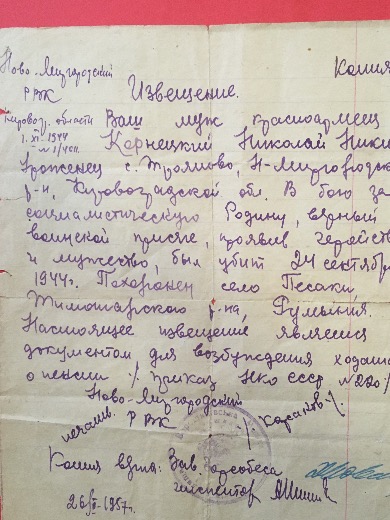 Ново-Миргородский Копия
РВК Извещение.
Кировог. области Ваш муж красноармеец
1. XI 1944 Корнецкий Николай Ники
уроженец с. Трояново, Н-Миргородск
р-н, Кировоградской обл. В бою за
социалистическую Родину, верный
воинской присяге, проявив геройств
и мужество, был убит 24 сентябр
1944г. Похоронен село Песаки,
Тимошарского р-на, Румыния.
Настоящее извещение является
документом для возбуждения ходата
о пенсии /: приказ НКО СССР № 220/:
Ново-Миргородский
РВК
Копия верна: Зав.
инспектор
1957г.